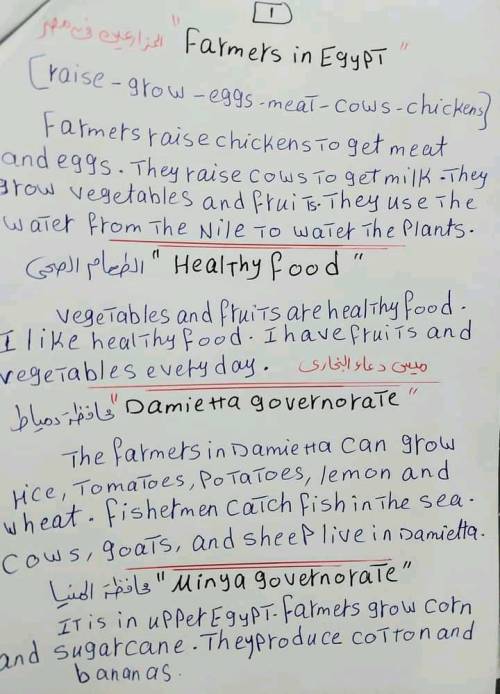 1
المزارعين في مصر "Farmers in Egypt"
[raise-grow-eggs-meat-cows-chickens]
Farmers raise chickens to get meat
and eggs. They raise cows to get milk. They
grow vegetables and fruits. They use the
water from the Nile to water the plants.
الطعام الصحي "Healthy food"
vegetables and fruits are healthy food.
I like healthy food. I have fruits and
vegetables every day. ميس دعاء البخاري
محافظة دمياط "Damietta governorate"
The farmers in Damietta can grow
rice, tomatoes, potatoes, lemon and
wheat. fishermen catch fish in the sea.
cows, goats, and sheep live in Damietta.
محافظة المنيا "Minya governorate"
It is in upper Egypt. Farmers grow corn
and sugarcane. They produce cotton and
bananas.